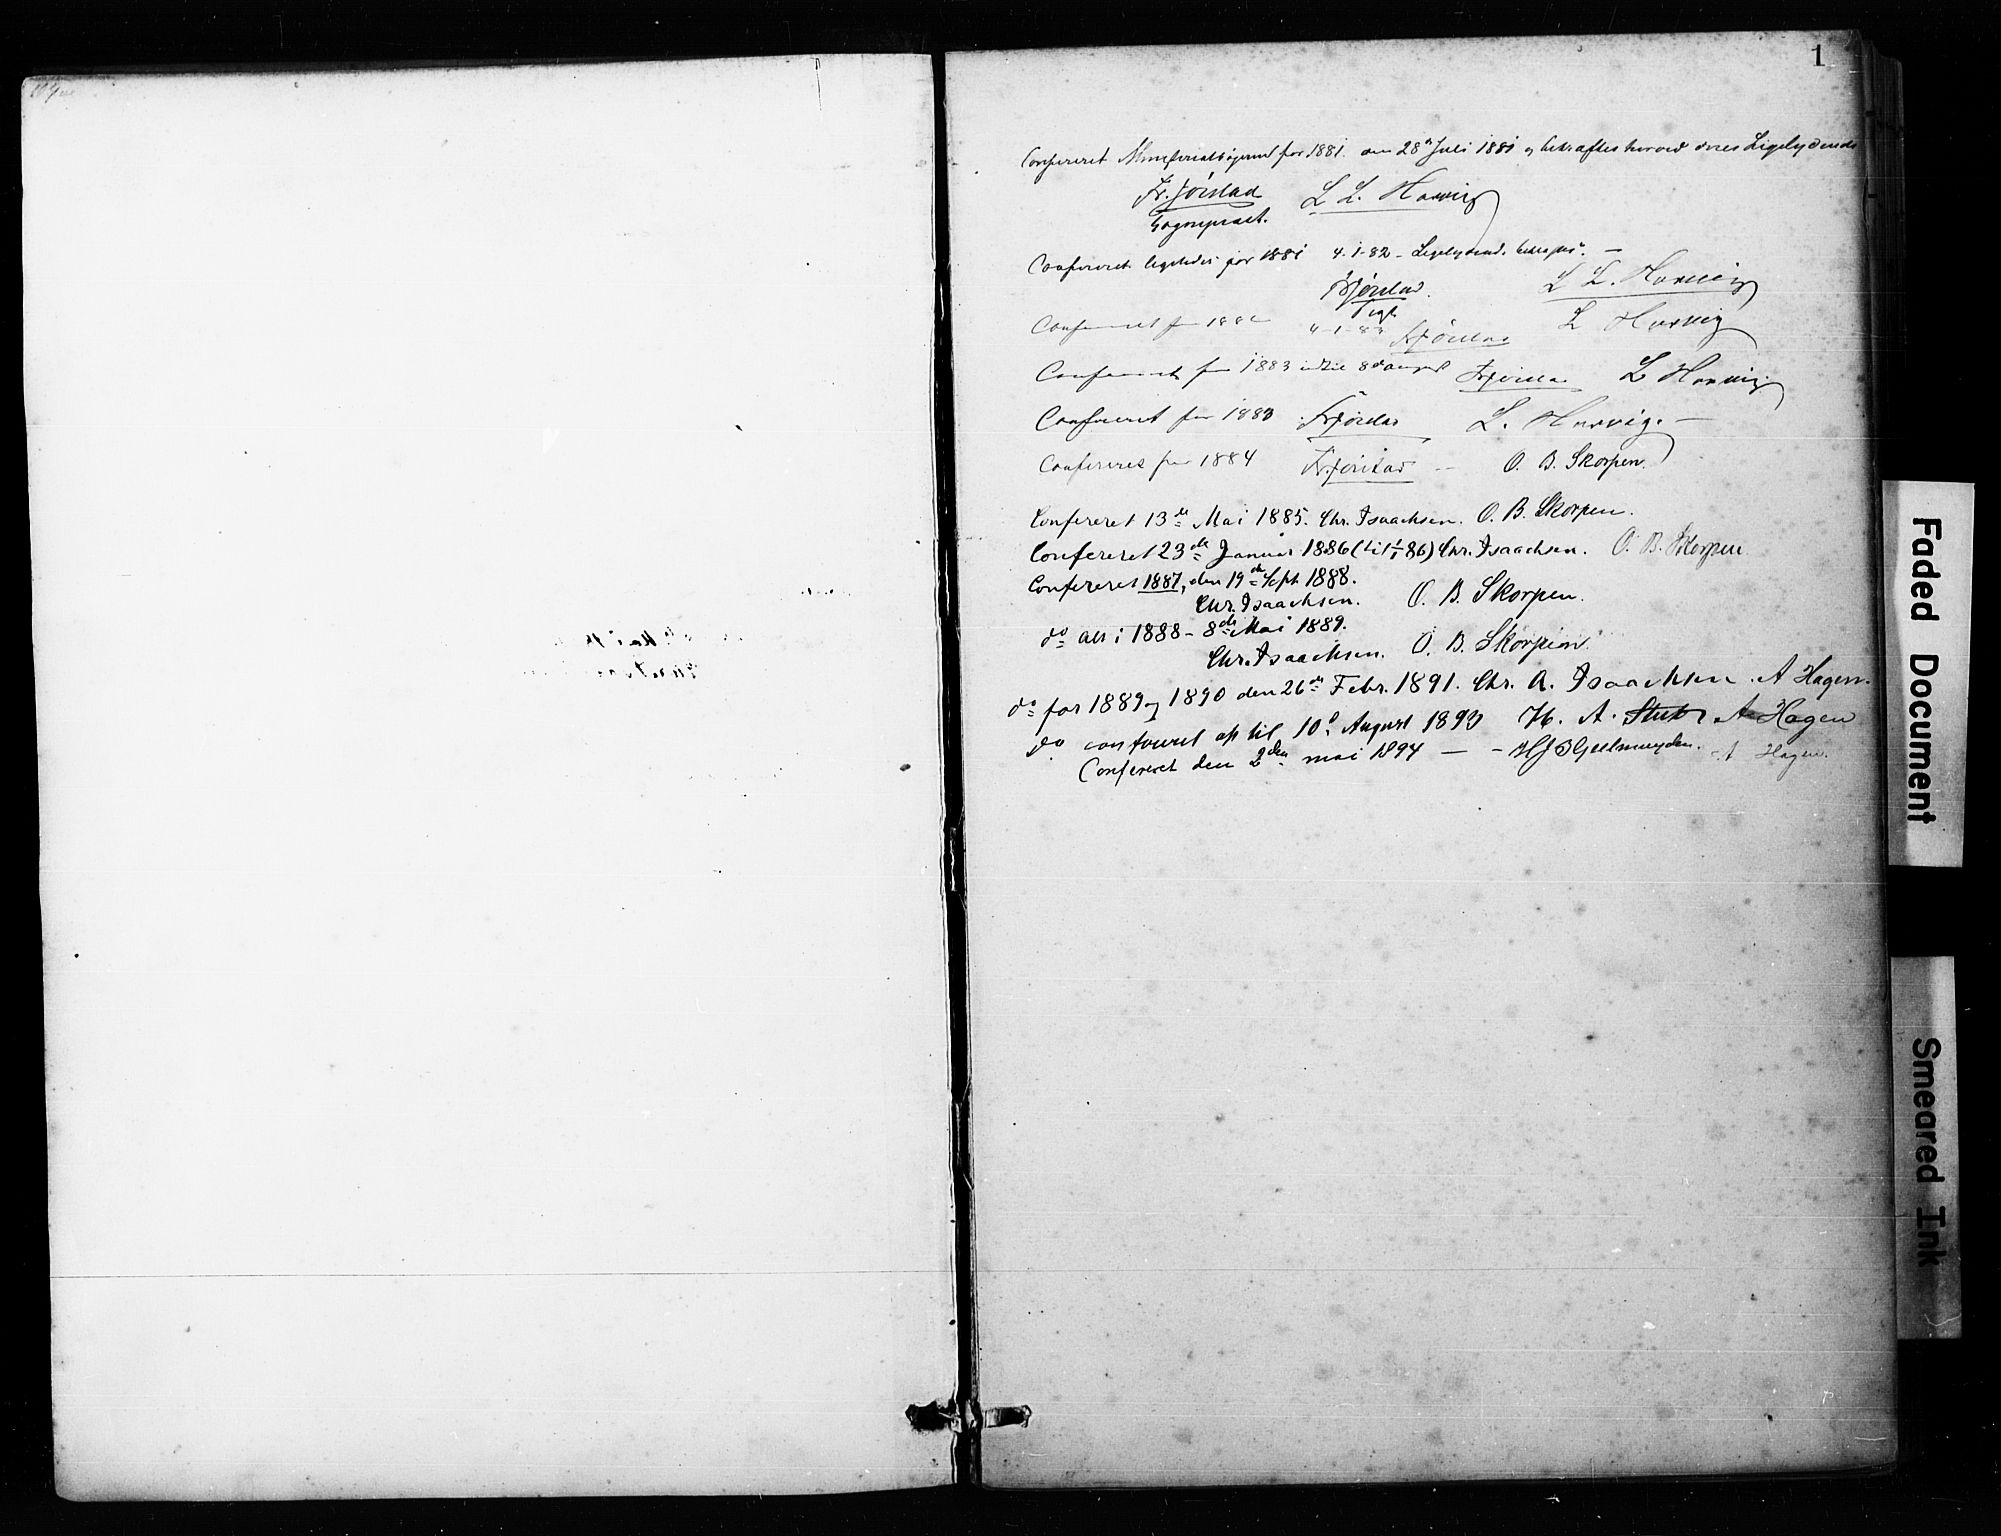 1
Confereret Ministerialbøgerne for 1881. den 28de Juli 1881 og bekræftes herved deres Ligelydende
Fr. Jörstad L L. Harvig
Sognepræst.
Confereret ligeledes for 1881 4-1-82 - Ligelydend. bekræftes. —
Fr Jörstad. L L. Harvig
Sogpr
Confereret for 1882 4-1-83 Fr Jörstad L Harvig
Confereret for 1883 indtil 8de august Fr Jörstad L Harvig
Confereret for 1883 Fr Jörstad L. Harvig. —
Confereret for 1884 Fr. Jörstad — O. B. Skorpen.
Confereret 13de Mai 1885. Chr. Isaachsen. O. B. Skorpen.
Confereret 23de Januar 1886 (til 1/1 86) Chr. Isaachsen. O. B. Skorpen
Confereret 1887, den 19de Sept 1888.
Chr. Isaachsen. O. B. Skorpen.
do alt i 1888 - 8de Mai 1889.
Chr. Isaachsen. O. B. Skorpen.
do for 1889 og 1890 den 26de Febr. 1891. Chr. A. Isaachsen. A Hagen.
do confereret op til 10d August 1893 H. A. Stub A Hagen
Confereret den 2den mai 1894 — - HJ B Geelmuyden. A Hagen.
Faded Document
Smeared Ink